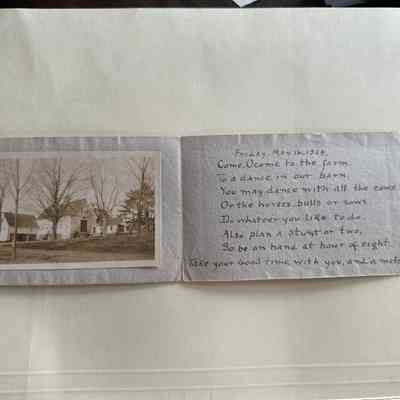 Friday, May 16, 1924.
Come, O come to the farm
To a dance in our barn.
You may dance with all the cows
Or the horses, bulls or sows
Do whatever you like to do.
Also plan a stunt or two,
So be on hand at hour of eight.
Take your good time with you, and a